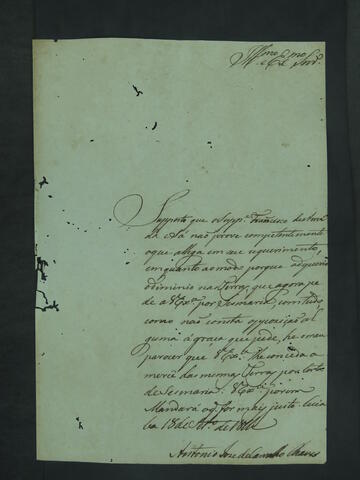 Illmo e Exmo Snr.
Supposto que o Suppe. Francisco
de Sá não prove competentemente
o que allega em seu requerimento,
em quanto ao modo porque adquerio
o dominio na Terra, que agora pe
de a VExa. por Sesmaria, comtudo,
como não consta opposição al
guma á graça que pede, he meu
parecer que VExa. lhe conceda a
mercê das mesmas Terras por Carta
de Sesmaria. VExa. porem
Mandará o q. for mais justo.
18 de
Antonio Jose de Carvalho Chaves